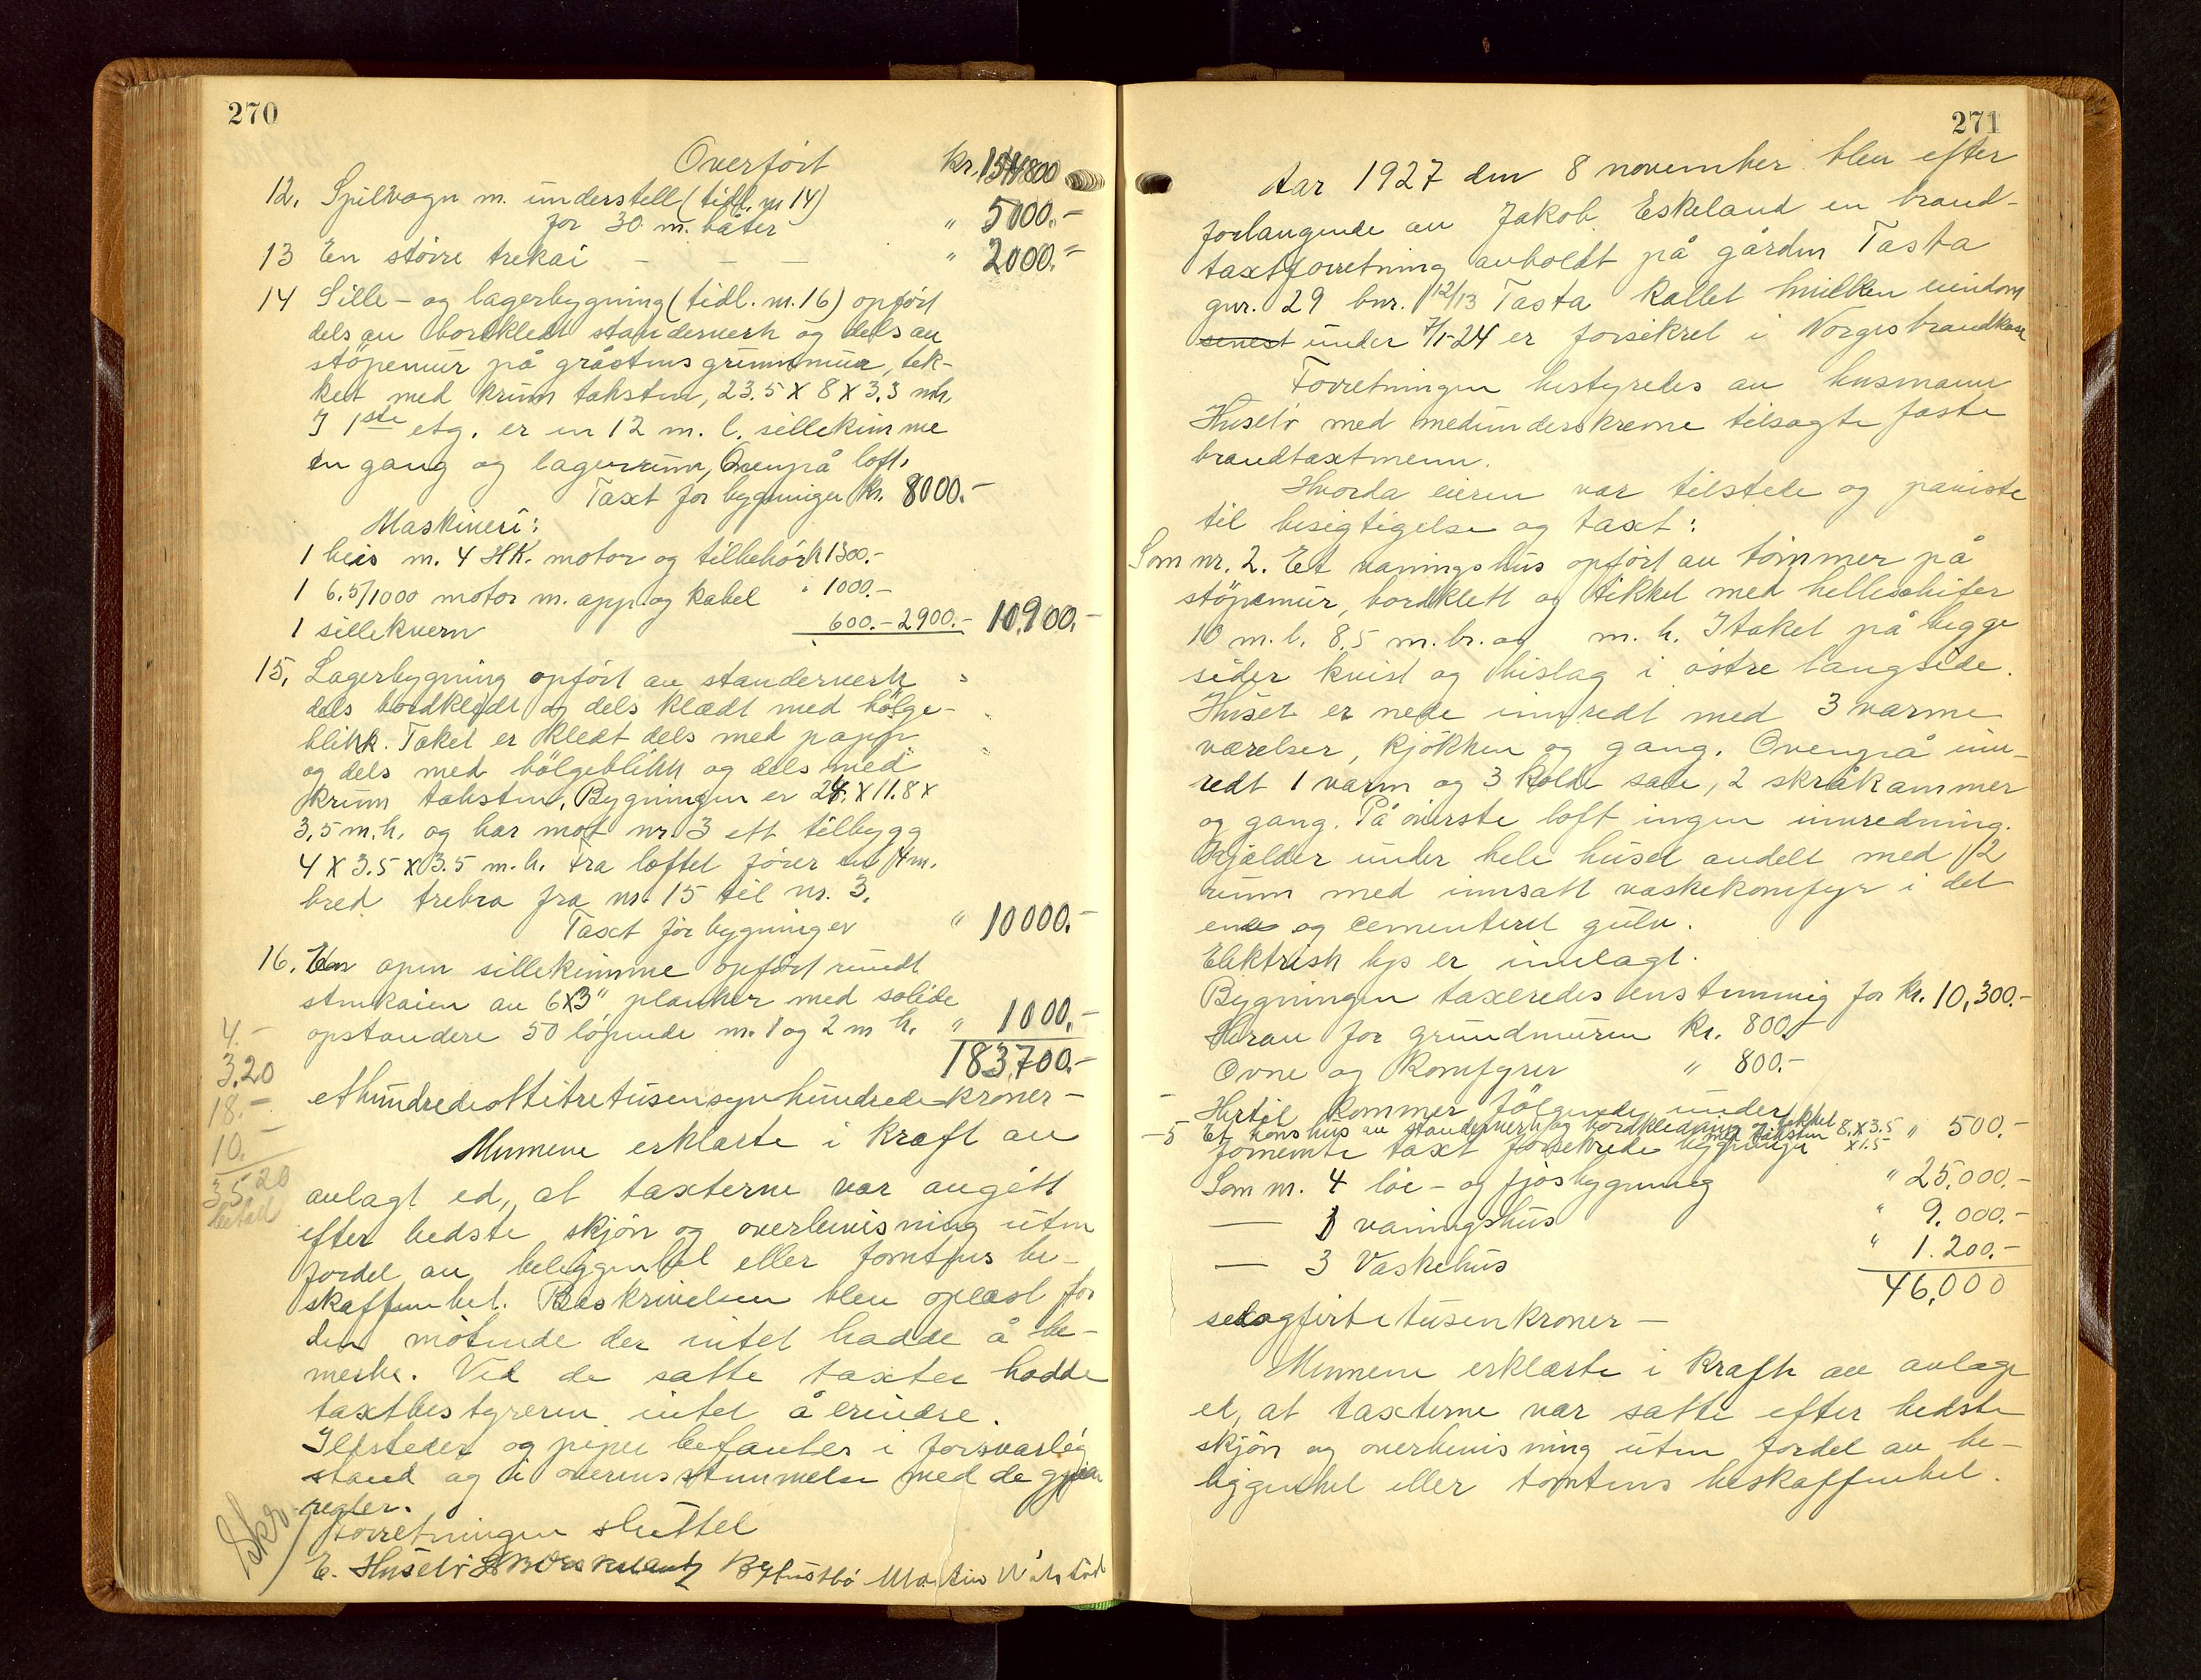 270
Overført kr. 154800
12. Spilvogn m. understell (tidl. nr 14)
for 30 m. båter " 5000.-
13 En större trekai — — — " 2000.-
14 Sille- og lagerbygning (tidl. nr. 16) opført
dels av bordkledt standerverk og dels av
stöpemur på gråstens grunnmur, tek-
ket med krum taksten, 23.5 X 8 X 3.3 mh.
I 1ste etg. er en 12 m. l. sillekimme
en gang og lagerrum, Ovenpå loft.
Taxt for bygningen kr. 8000.-
Maskineri:
1 heis m. 4 HK. motor og tilbehör kr 1300.-
1 6.5/1000 motor m. app. og kabel " 1000.-
1 sillekvern 600.- 2900.- 10,900.-
15. Lagerbygning opført av standerverk
dels bordkledt og dels klædt med bölge-
blikk. Taket er kledt dels med papp
og dels med bölgeblikk og dels med
krum taksten. Bygningen er 24. X 11.8 X
3,5 m. h. og har mot nr. 3 ett tilbygg
4 X 3.5 X 3.5 m. h. Fra loftet förer en 4 m.
bred trebro fra nr. 15 til nr. 3.
Taxt for bygningen " 10000.-
16. En open sillekimme opført rundt
stenkaien av 6X3" planker med solide
opstandere 50 löpende m. 1 og 2 m h. " 1000.-
183,700.-
4.-
3.20
18.-
10.-
35 20
betalt
ethundredeottitretusensyvhundredekroner-
Mennene erklærte i kraft av
avlagt ed, at taxterne var angitt
efter bedste skjön og overbevisning uten
fordel av beliggenhet eller tomtens be-
skaffenhet. Beskrivelsen blev oplæst for
den mötende der intet hadde å be-
merke. Ved de satte taxter hadde
taxtbestyreren intet å erindre.
Ildsteder og piper befantes i forsvarlig
stand og i overensstemmelse med de gjeld.
regler.
Forretningen sluttet
Skr.
E. Huselv
271
Aar 1927 den 8 november blev efter
forlangende av Jakob Eskeland en brand-
taxtforretning avholdt på gården Tasta
gnr. 29 bnr. 12/13 Tasta kallet hvilken eiendom
senest under 7/1-24 er forsikret i Norges brandkasse
Forretningen bestyredes av husmann
Huselv med medunderskrevne tilsagte faste
brandtaxtmenn.
Hvorda eieren var tilstede og påviste
til besigtigelse og taxt:
Som nr. 2. Et våningshus opført av tömmer på
stöpemur, bordklett og tekket med helleskifer
10 m. l. 8,5 m. br. og m. h. I taket på begge
sider kvist og bislag i östre langside.
Huset er nede innredt med 3 varme
værelser, kjökken og gang. Ovenpå inn-
redt 1 varm og 3 kolde sove, 2 skråkammer
og gang. På överste loft ingen innredning.
Kjelder under hele huset andelt med 2
rum med innsatt vaskekomfyr i det
ene og cementeret gulv.
Elektrisk lys er innlagt.
Bygningen taxeredes enstemmig for kr. 10,300.-
Herav for grundmuren kr. 800.-
Ovne og komfyrer " 800.-
Hertil kommer fölgende under
—5 Et hönshus av standerverk og bordkledning og tekket med taksten 8. X 3.5 X 1.5 " 500.-
fornemte taxt forsekrede bygninger
Som nr. 4 löe- og fjösbygning " 25,000.-
— 1 våningshus " 9.000.-
— 3 Vaskehus " 1.200.-
46,000
seksogfirtitusenkroner —
Mennene erklærte i kraft av avlagt
ed, at taxterne var satte efter bedste
skjön og overbevisning uten fordel av be-
liggenhet eller tomtens beskaffenhet.